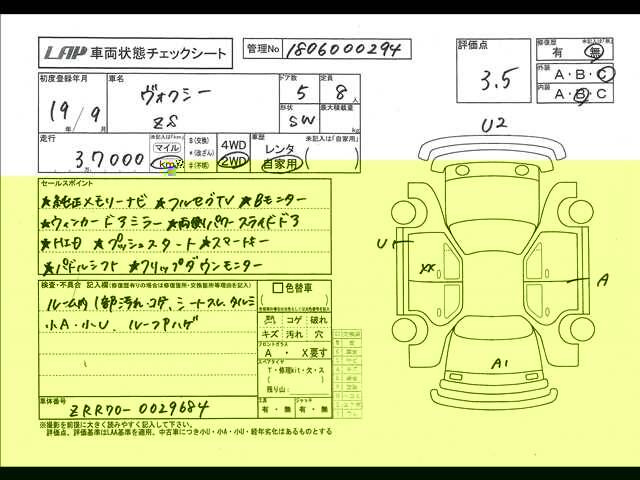 LAA 車両状態チェックシート
管理No 1806000294
評価点
3.5
修復歴
有 無
外装
A・B・C
内装
A・B・C
初度登録年月
19年 9月
車名
ヴォクシー
ZS
ドア数
5
定員
8人
形状
SW
最大積載量
kg
走行
37000
マイル
km
$(交換)
*(改ざん)
#(不明)
4WD
2WD
車歴
未記入は「自家用」
レンタ
自家用
U2
U1
XX
A
A1
セールスポイント
★純正メモリーナビ ★フルセグTV ★Bモニター
★ウィンカードアミラー ★両側パワースライドドア
★HID ★プッシュスタート ★スマートキー
★パドルシフト ★フリップダウンモニター
検査・不具合 記入欄(修復歴有りの場合は修復箇所・交換箇所等理由を記入)
ルーム内1部汚れ・コゲ、シートスレ、タルミ
小A・小U、ルーフPハゲ
色替車
コゲ 破れ
キズ 汚れ 穴
フロントガラス
A ・ X要す
スペアタイヤ
T・修理kit・欠・ス
残り山:
工具
有・無
ジャッキ
有・無
車体番号
ZRR70-0029684
※撮影を前提に大きく読みやすく記入して下さい。
評価点、評価基準はLAA基準を適用。中古車につき小U・小A・小W・経年劣化はあるものとする